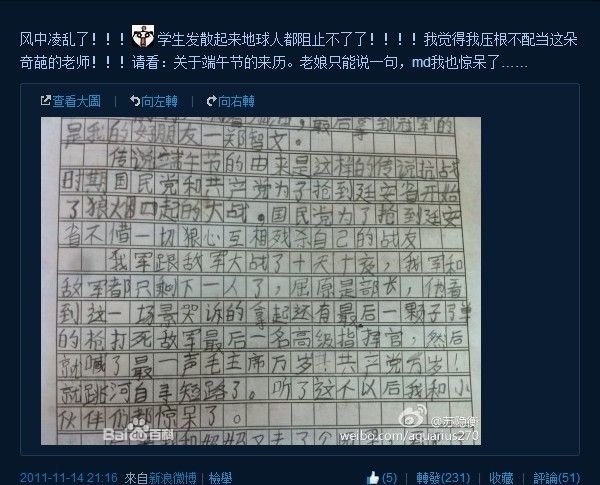 风中凌乱了！！！学生发散起来地球人都阻止不了了！！！！我觉得我压根不配当这朵
奇葩的老师！！！请看：关于端午节的来历。老娘只能说一句，md我也惊呆了……
查看大圖 | 向左轉 | 向右轉
最后拿到冠军的
是我的好朋友一郑智文。
传说端午节的由来是这样的传说抗战
时期国民党和共产党为了抢到延安省开始
了狼烟四起的大战。国民党为了抢到延安
省不惜一切狠心互相残杀自己的战友
我军跟敌军大战了十天十夜，我军和
敌军都只剩下一人了，屈原是部长，他看
到这一场景哭诉的拿起还有最后一颗子弹
的枪打死敌军最后一名高级指挥官，然后
就喊了最一声毛主席万岁！共产党万岁！
就跳河自寻短路了。听了这个以后我和小
伙伴们都惊呆了。
Bai百科
@苏隐衡
weibo.com/aquarius270
2011-11-14 21:16 來自新浪微博 | 檢舉
(5) | 轉發(231) | 收藏 | 評論(51)